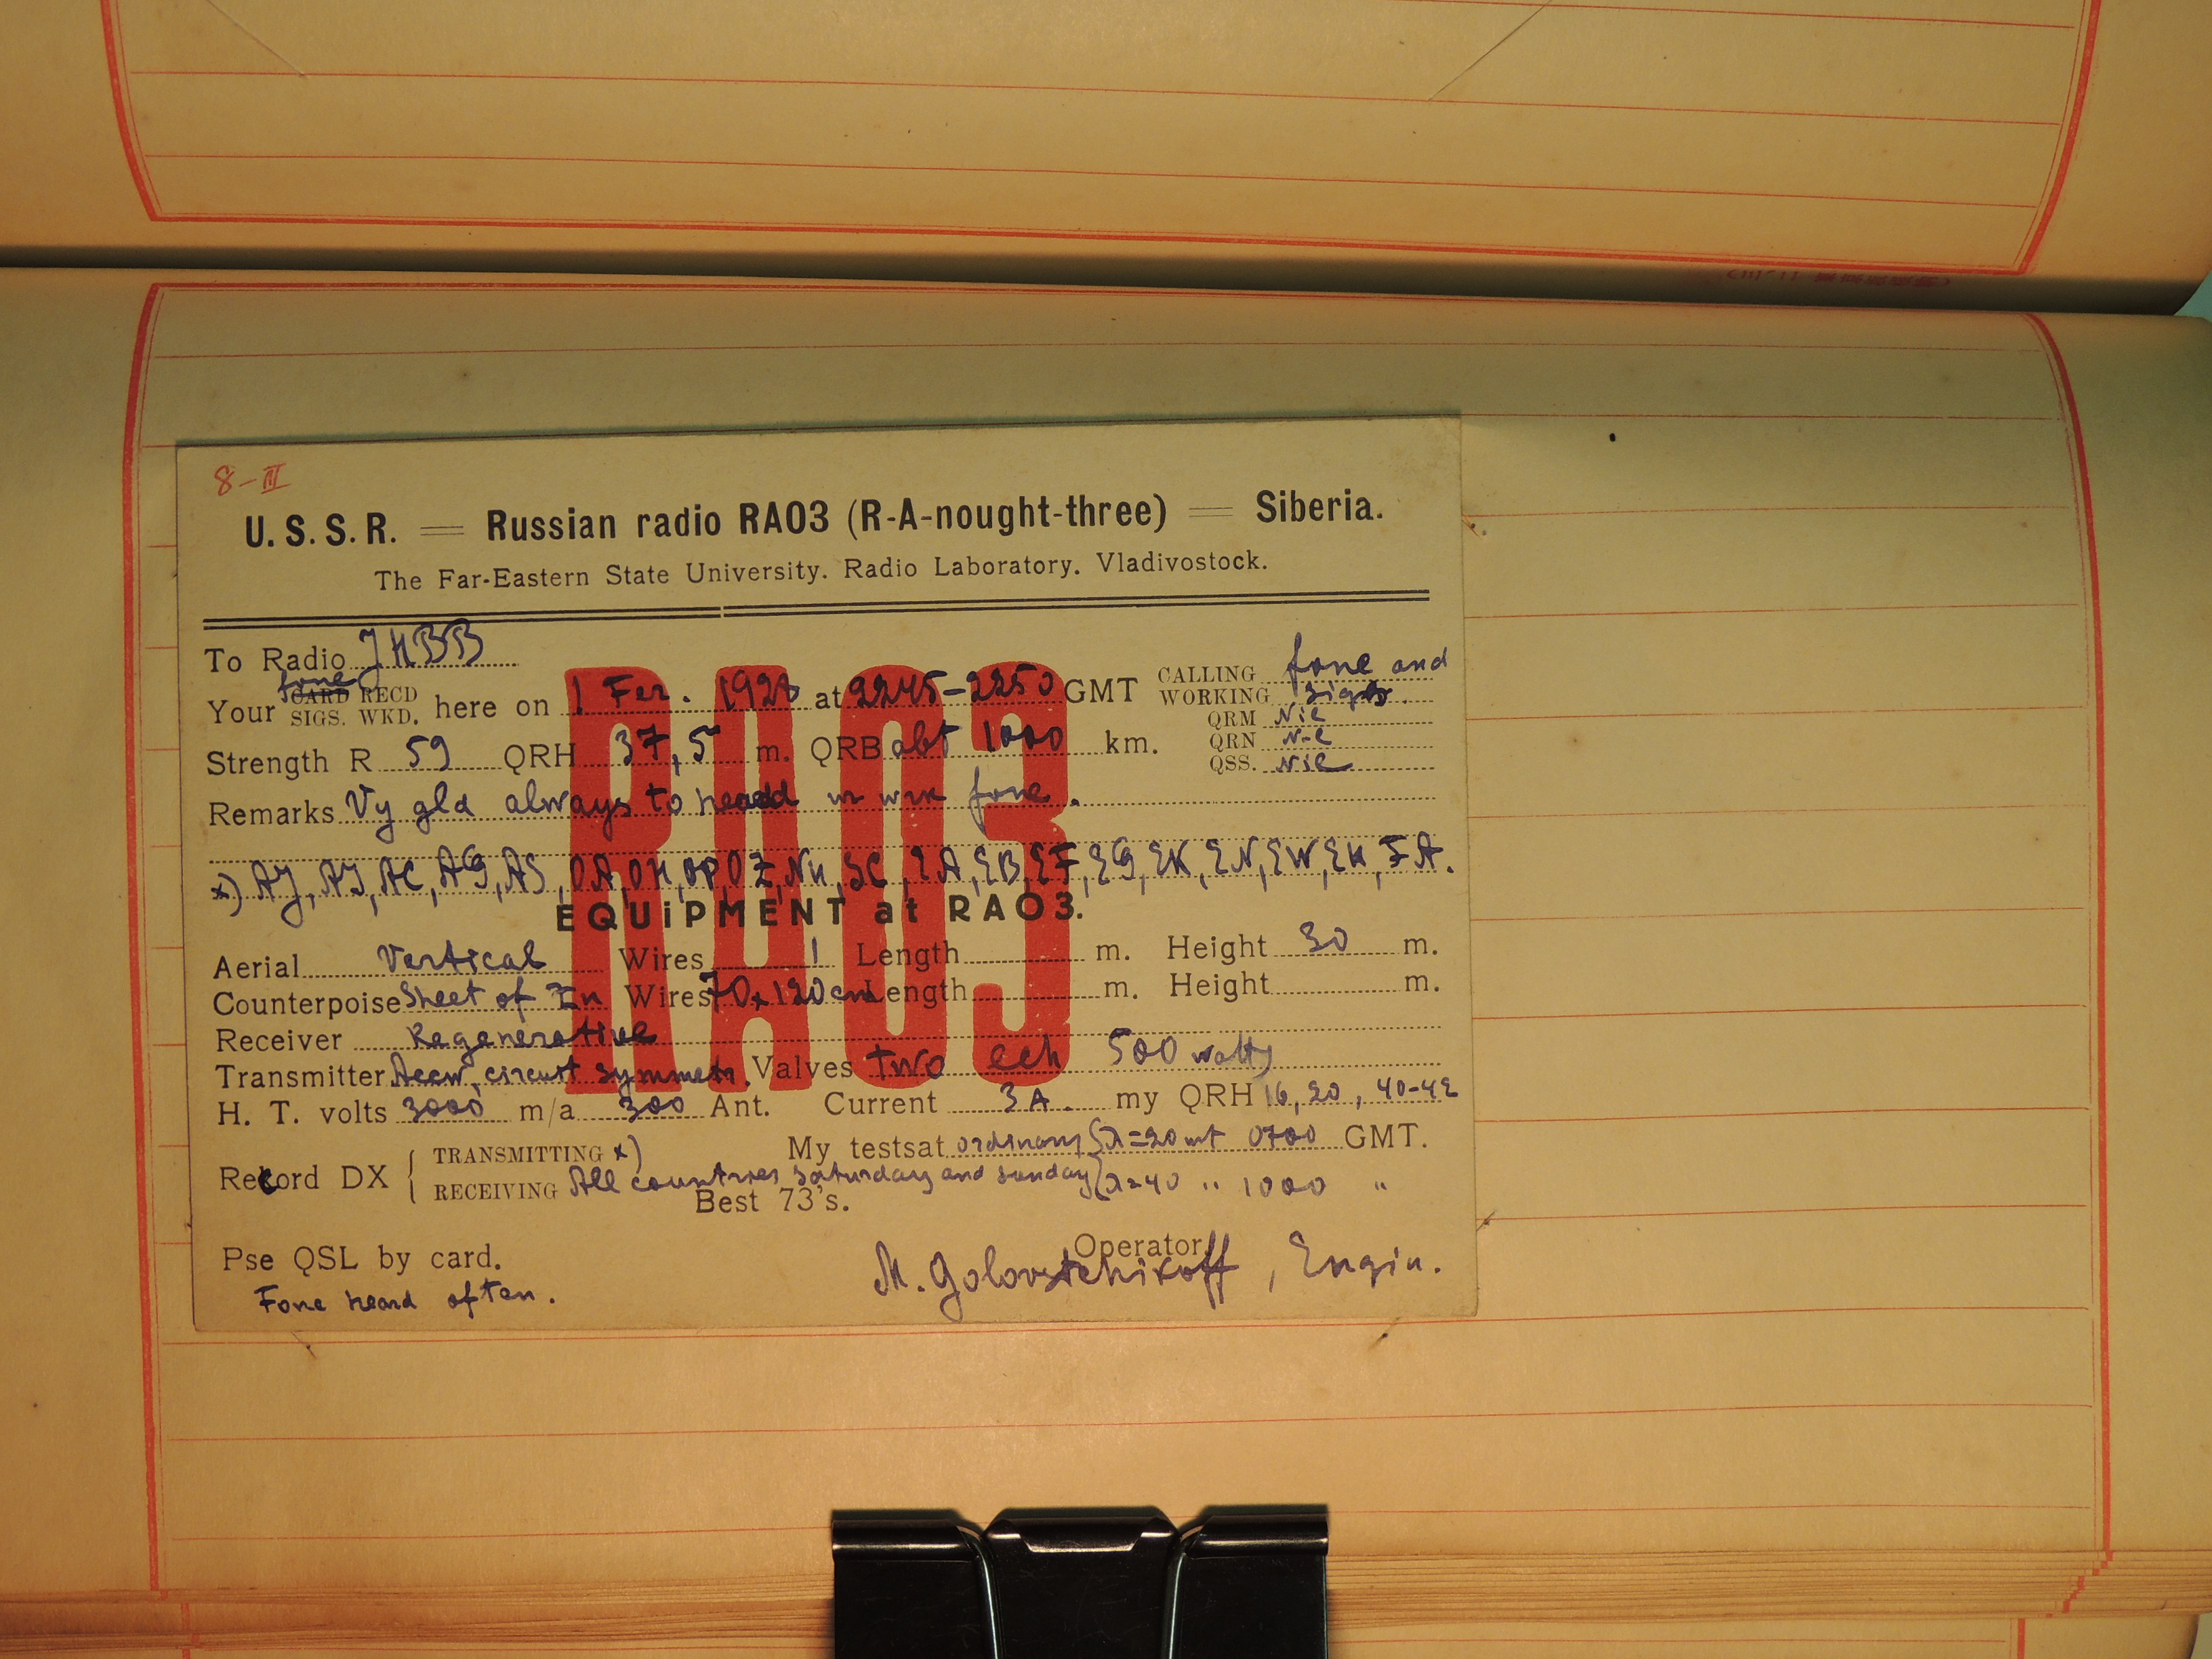 8-III
U.S.S.R. = Russian radio RA03 (R-A-nought-three) = Siberia.
The Far-Eastern State University. Radio Laboratory. Vladivostock.
To Radio JHBB
Your fone CARD RECD SIGS. WKD. here on 1 Fer. 1928 at 2245-2250 GMT CALLING WORKING fone and sigs.
QRM Nil
QRN Nil
QSS. Nil
Strength R 59 QRH 37,5 m. QRB abt 1000 km.
Remarks Vy gld always to heard ur wrk fone.
x) AJ, AI, AC, AG, AS, OA, OH, OP, OZ, NU, SC, EA, EB, EF, EG, EK, EN, EW, EU, FA.
RA03
EQUiPMENT at RA03.
Aerial Vertical Wires 1 Length m. Height 30 m.
Counterpoise Sheet of Zn Wires 70x120 cm Length m. Height m.
Receiver Regenerative
Transmitter circuit symmetr. Valves two ech 500 watts
H. T. volts 3000 m/a 300 Ant. Current 3A. my QRH 16, 20, 40-42
Record DX { TRANSMITTING x) My tests at ordinary { λ=20 mt 0700 GMT.
RECEIVING All countries saturday and sunday { λ=40 " 1000 "
Best 73's.
Pse QSL by card.
Operator
Fone heard often.
M. Golovstchikoff, Engin.